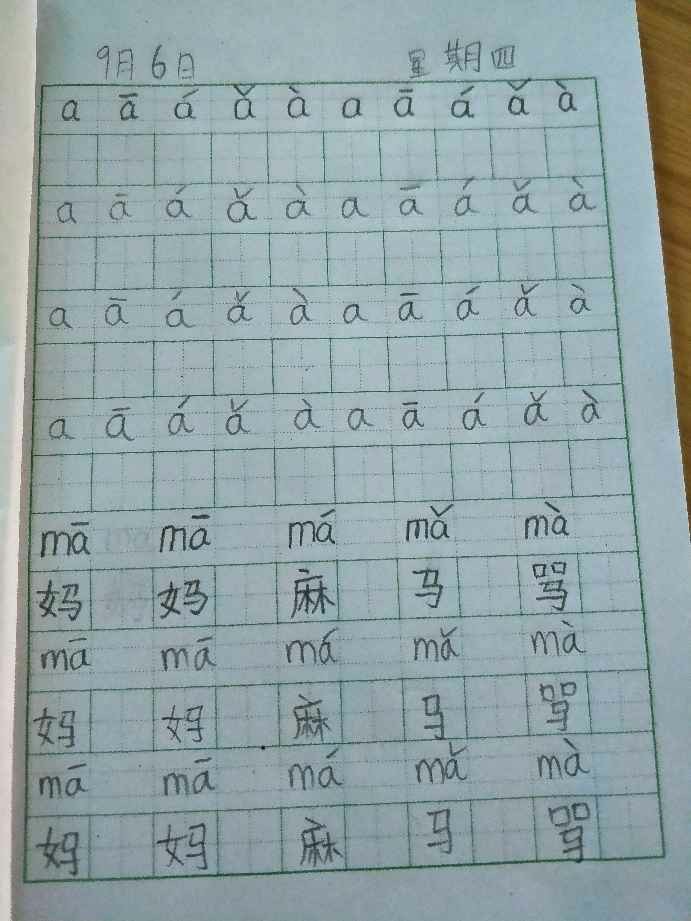 9月6日 星期四
a ā á ǎ à a ā á ǎ à
a ā á ǎ à a ā á ǎ à
a ā á ǎ à a ā á ǎ à
a ā á ǎ à a ā á ǎ à
mā mā má mǎ mà
妈 妈 麻 马 骂
mā mā má mǎ mà
妈 妈 麻 马 骂
mā mā má mǎ mà
妈 妈 麻 马 骂